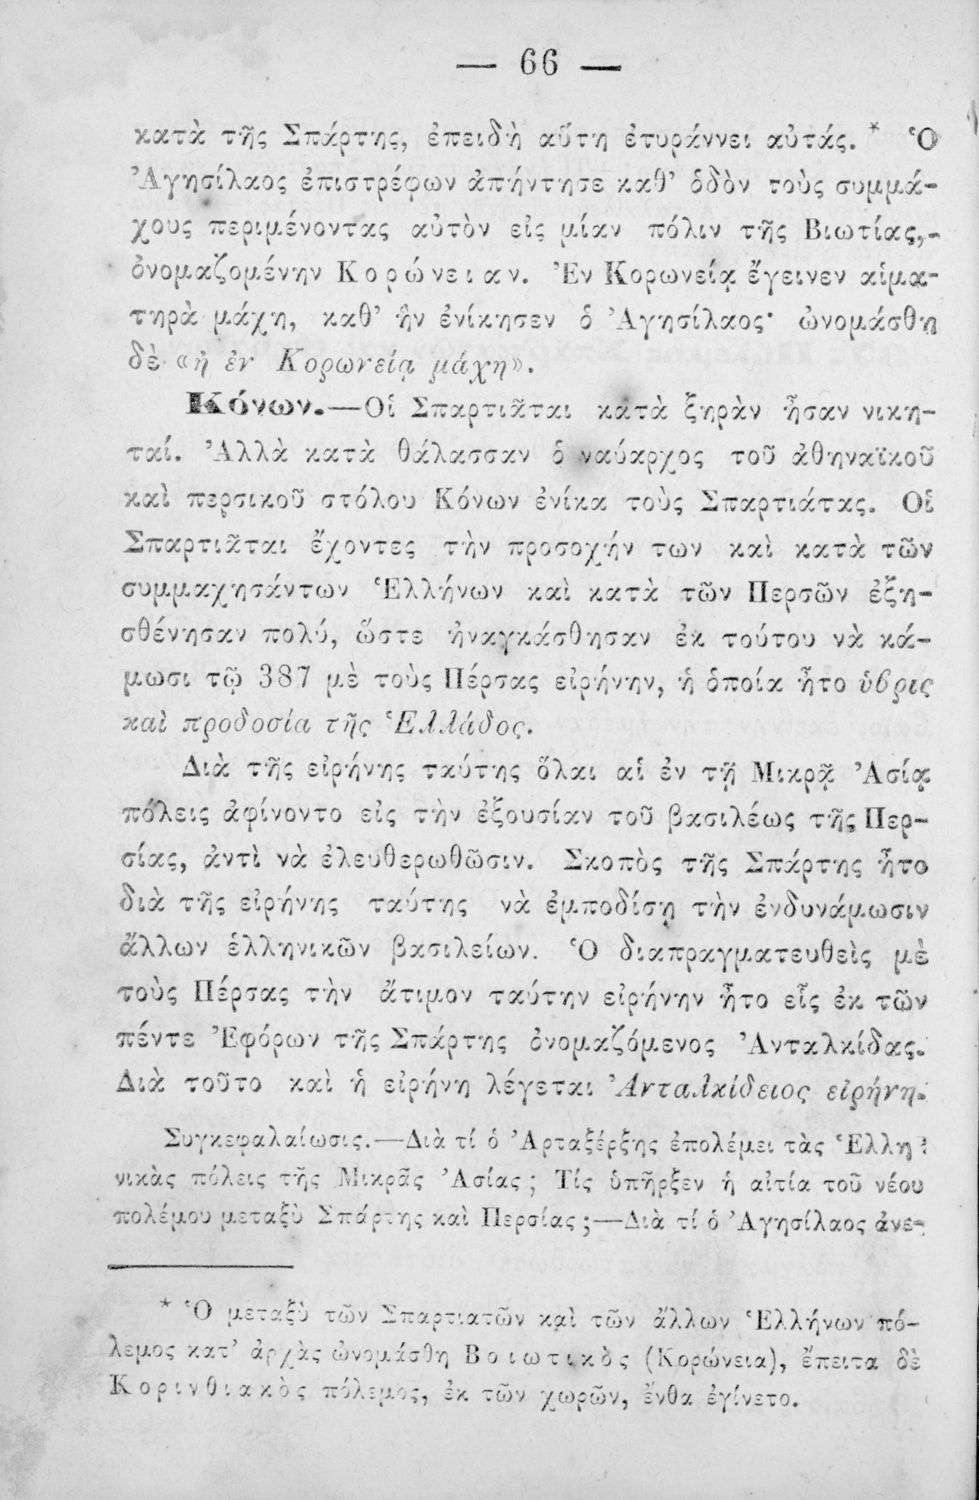 — 66 —
κατὰ τῆς Σπάρτης, ἐπειδὴ αὕτη ἐτυράννει αὐτάς. * Ὁ
Ἀγησίλαος ἐπιστρέφων ἀπήντησε καθ’ ὁδὸν τοὺς συμμά-
χους περιμένοντας αὐτὸν εἰς μίαν πόλιν τῆς Βιωτίας,
ὀνομαζομένην Κορώνειαν. Ἐν Κορωνείᾳ ἔγεινεν αἱμα-
τηρὰ μάχη, καθ’ ἣν ἐνίκησεν ὁ Ἀγησίλαος· ὠνομάσθη
δὲ «ἡ ἐν Κορωνείᾳ μάχη».
Κόνων.—Οἱ Σπαρτιᾶται κατὰ ξηρὰν ἦσαν νικη-
ταί. Ἀλλὰ κατὰ θάλασσαν ὁ ναύαρχος τοῦ ἀθηναϊκοῦ
καὶ περσικοῦ στόλου Κόνων ἐνίκα τοὺς Σπαρτιάτας. Οἱ
Σπαρτιᾶται ἔχοντες τὴν προσοχήν των καὶ κατὰ τῶν
συμμαχησάντων Ἑλλήνων καὶ κατὰ τῶν Περσῶν ἐξη-
σθένησαν πολύ, ὥστε ἠναγκάσθησαν ἐκ τούτου νὰ κά-
μωσι τῷ 387 μὲ τοὺς Πέρσας εἰρήνην, ἡ ὁποία ἦτο ὕβρις
καὶ προδοσία τῆς Ἑλλάδος.
Διὰ τῆς εἰρήνης ταύτης ὅλαι αἱ ἐν τῇ Μικρᾷ Ἀσίᾳ
πόλεις ἀφίνοντο εἰς τὴν ἐξουσίαν τοῦ βασιλέως τῆς Περ-
σίας, ἀντὶ νὰ ἐλευθερωθῶσιν. Σκοπὸς τῆς Σπάρτης ἦτο
διὰ τῆς εἰρήνης ταύτης νὰ ἐμποδίσῃ τὴν ἐνδυνάμωσιν
ἄλλων ἑλληνικῶν βασιλείων. Ὁ διαπραγματευθεὶς μὲ
τοὺς Πέρσας τὴν ἄτιμον ταύτην εἰρήνην ἦτο εἷς ἐκ τῶν
πέντε Ἐφόρων τῆς Σπάρτης ὀνομαζόμενος Ἀνταλκίδας.
Διὰ τοῦτο καὶ ἡ εἰρήνη λέγεται Ἀνταλκίδειος εἰρήνη.
Συγκεφαλαίωσις.—Διὰ τί ὁ Ἀρταξέρξης ἐπολέμει τὰς Ἑλλη-
νικὰς πόλεις τῆς Μικρᾶς Ἀσίας; Τίς ὑπῆρξεν ἡ αἰτία τοῦ νέου
πολέμου μεταξὺ Σπάρτης καὶ Περσίας;—Διὰ τί ὁ Ἀγησίλαος ἀνε-
* Ὁ μεταξὺ τῶν Σπαρτιατῶν καὶ τῶν ἄλλων Ἑλλήνων πό-
λεμος κατ’ ἀρχὰς ὠνομάσθη Βοιωτικὸς (Κορώνεια), ἔπειτα δὲ
Κορινθιακὸς πόλεμος, ἐκ τῶν χωρῶν, ἔνθα ἐγίνετο.